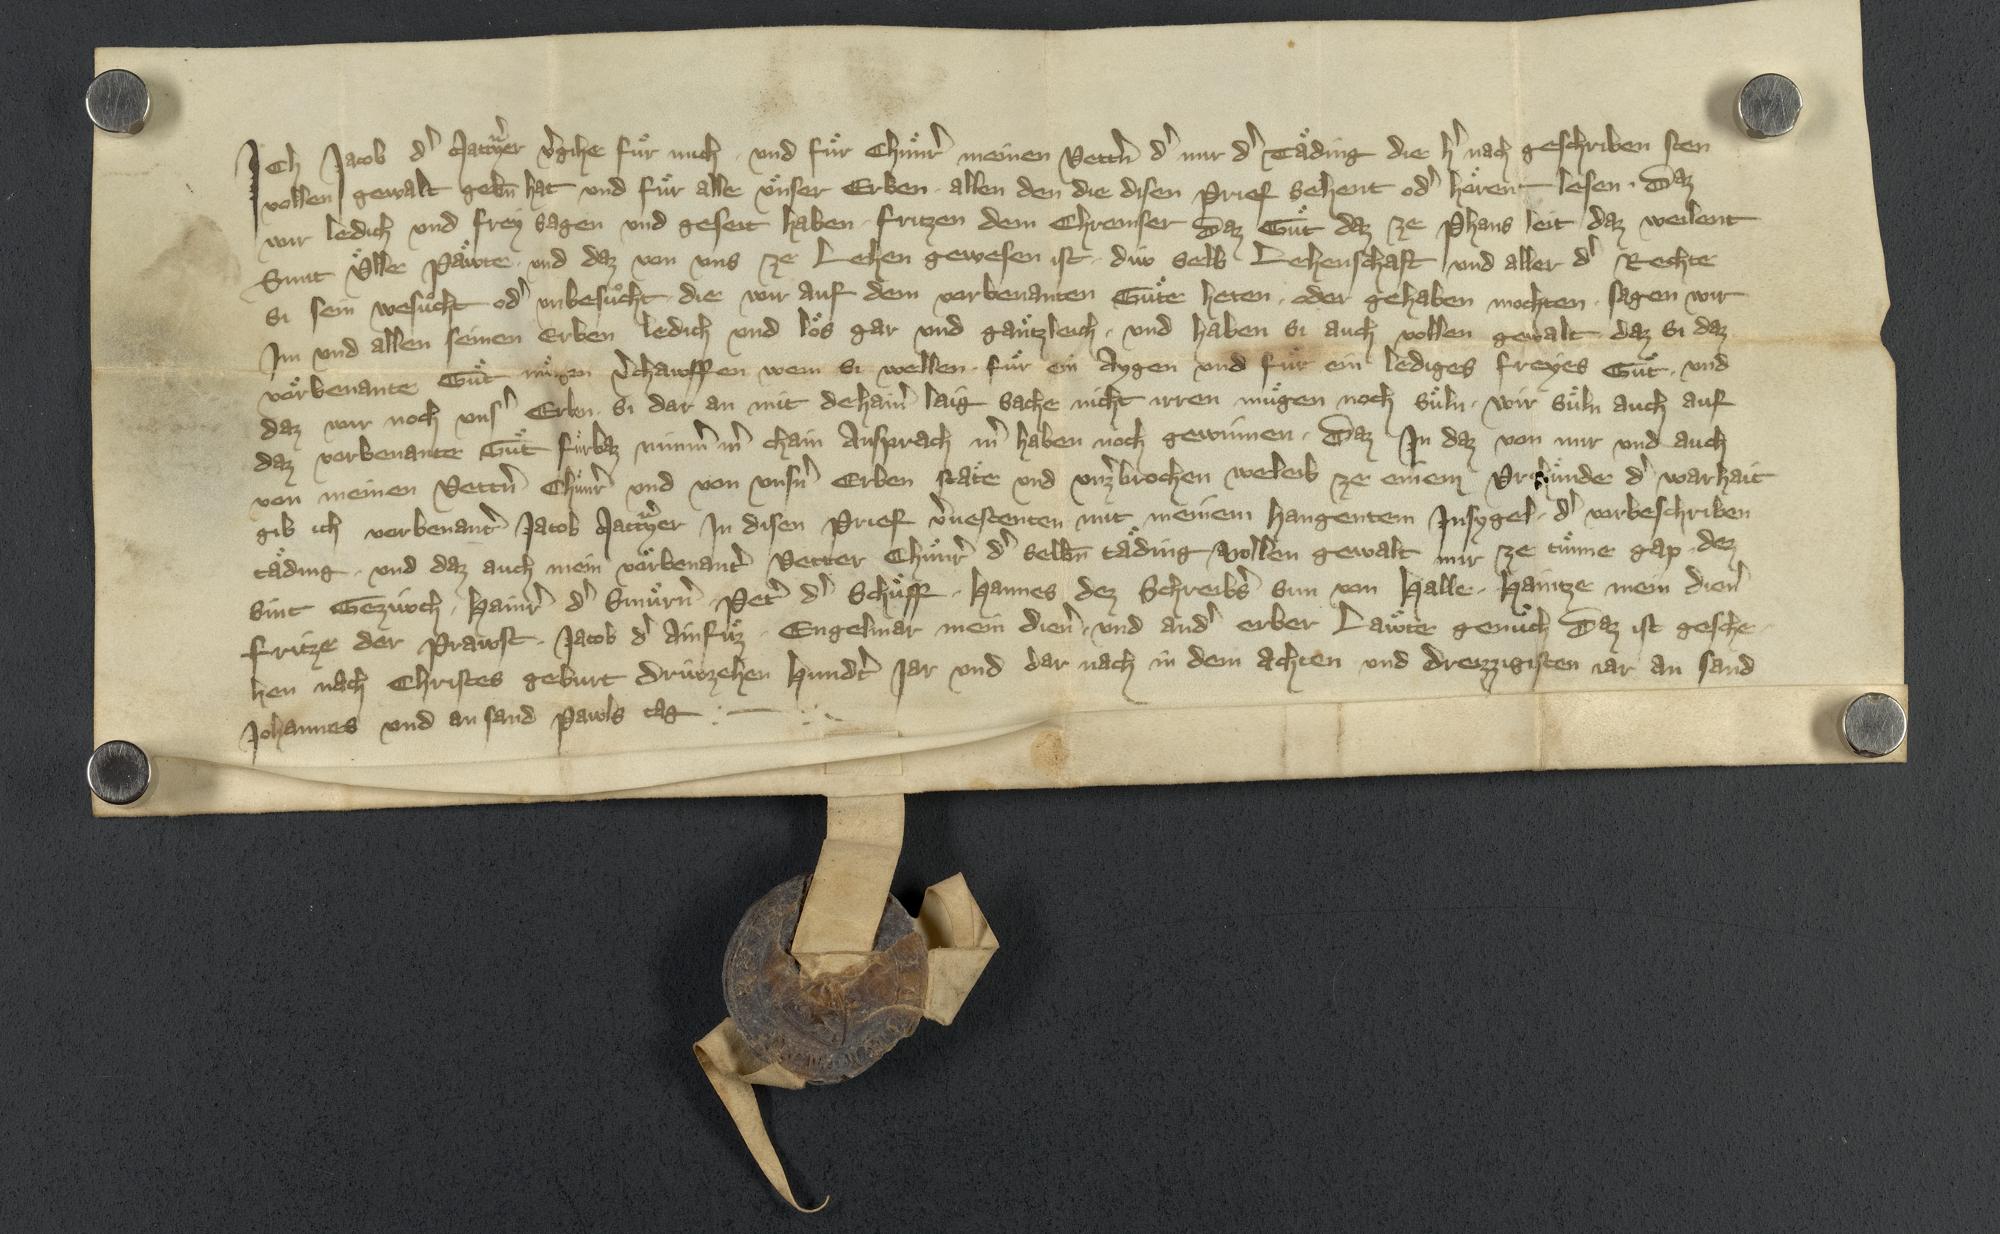 Ich Jacob d' v'gihe fuͤr mich · und fuͤr Chuͤnr' meinen Vett'n d' mir d' Taͤding die h' nach geschriben sten
vollen gewalt gebn̄ hat und fuͤr alle uͤnser Erben · allen den die disen Prief sehent od' hoͤrent lesen · Daz
wir ledich und frey sagen und geseit haben · Fritzen dem Chremser Daz Guͤt daz ze Phans leit · daz weilent
Paͤwte · und daz von uns ze Lehen gewesen ist · diw selb Lehenschaft und aller d' Rechte
si sein wesuͦcht od' unbesuͦcht · die wir auf dem vorbenanten Guͤte heten · oder gehaben mochten · sagen wir
Im und allen seinen Erben ledich und loͤs gar und gaͤntzleich · und haben si auch vollen gewalt · daz si daz
voͤrbenante Guͤt muͤgen v'chawffen wem si wellen · fuͤr ein Aygen und fuͤr ein lediges freyes Guͤt · und
daz wir noch uns' Erbn · si dar an mit dehain' laig sache nicht irren muͤgen noch suͤln · wir suͤln auch auf
daz vorbenante Guͤt fuͤrbaz nimm' m' chain Ansprach m' haben noch gewinnen · Daz In daz von mir und auch
von meinen Vett'n Chuͤnr' und von uns'n Erben staͤte und unz'brochen weleib ze einem Vrchuͤnde d' warhait
gib ich vorbenant' Jacob In disen Prief v'uestenten mit meinem hangentem Insygel · d' vorbeschriben
taͤding · und daz auch mein voͤrbenant' Vetter Chuͤnr' d' selbn̄ taͤding vollen gewalt mir ze tuͤnne gap · dez
sint Geziwch · Hainr' d' · Pet' d' Schuͤff · Hannes dez Schreib's sun von Halle · Haintze mein dien'
Fritze der Prawst · Jacob d' Ainfuͤz · Engelmar mein dien' · und and' erber Laͤwte genuͤch Daz ist gesche
hen nach Christes geburt driwzehen Hund't Jar und dar nach in dem Achten und dreizzigisten iar an sand
Johannes und an sand Pawls tag